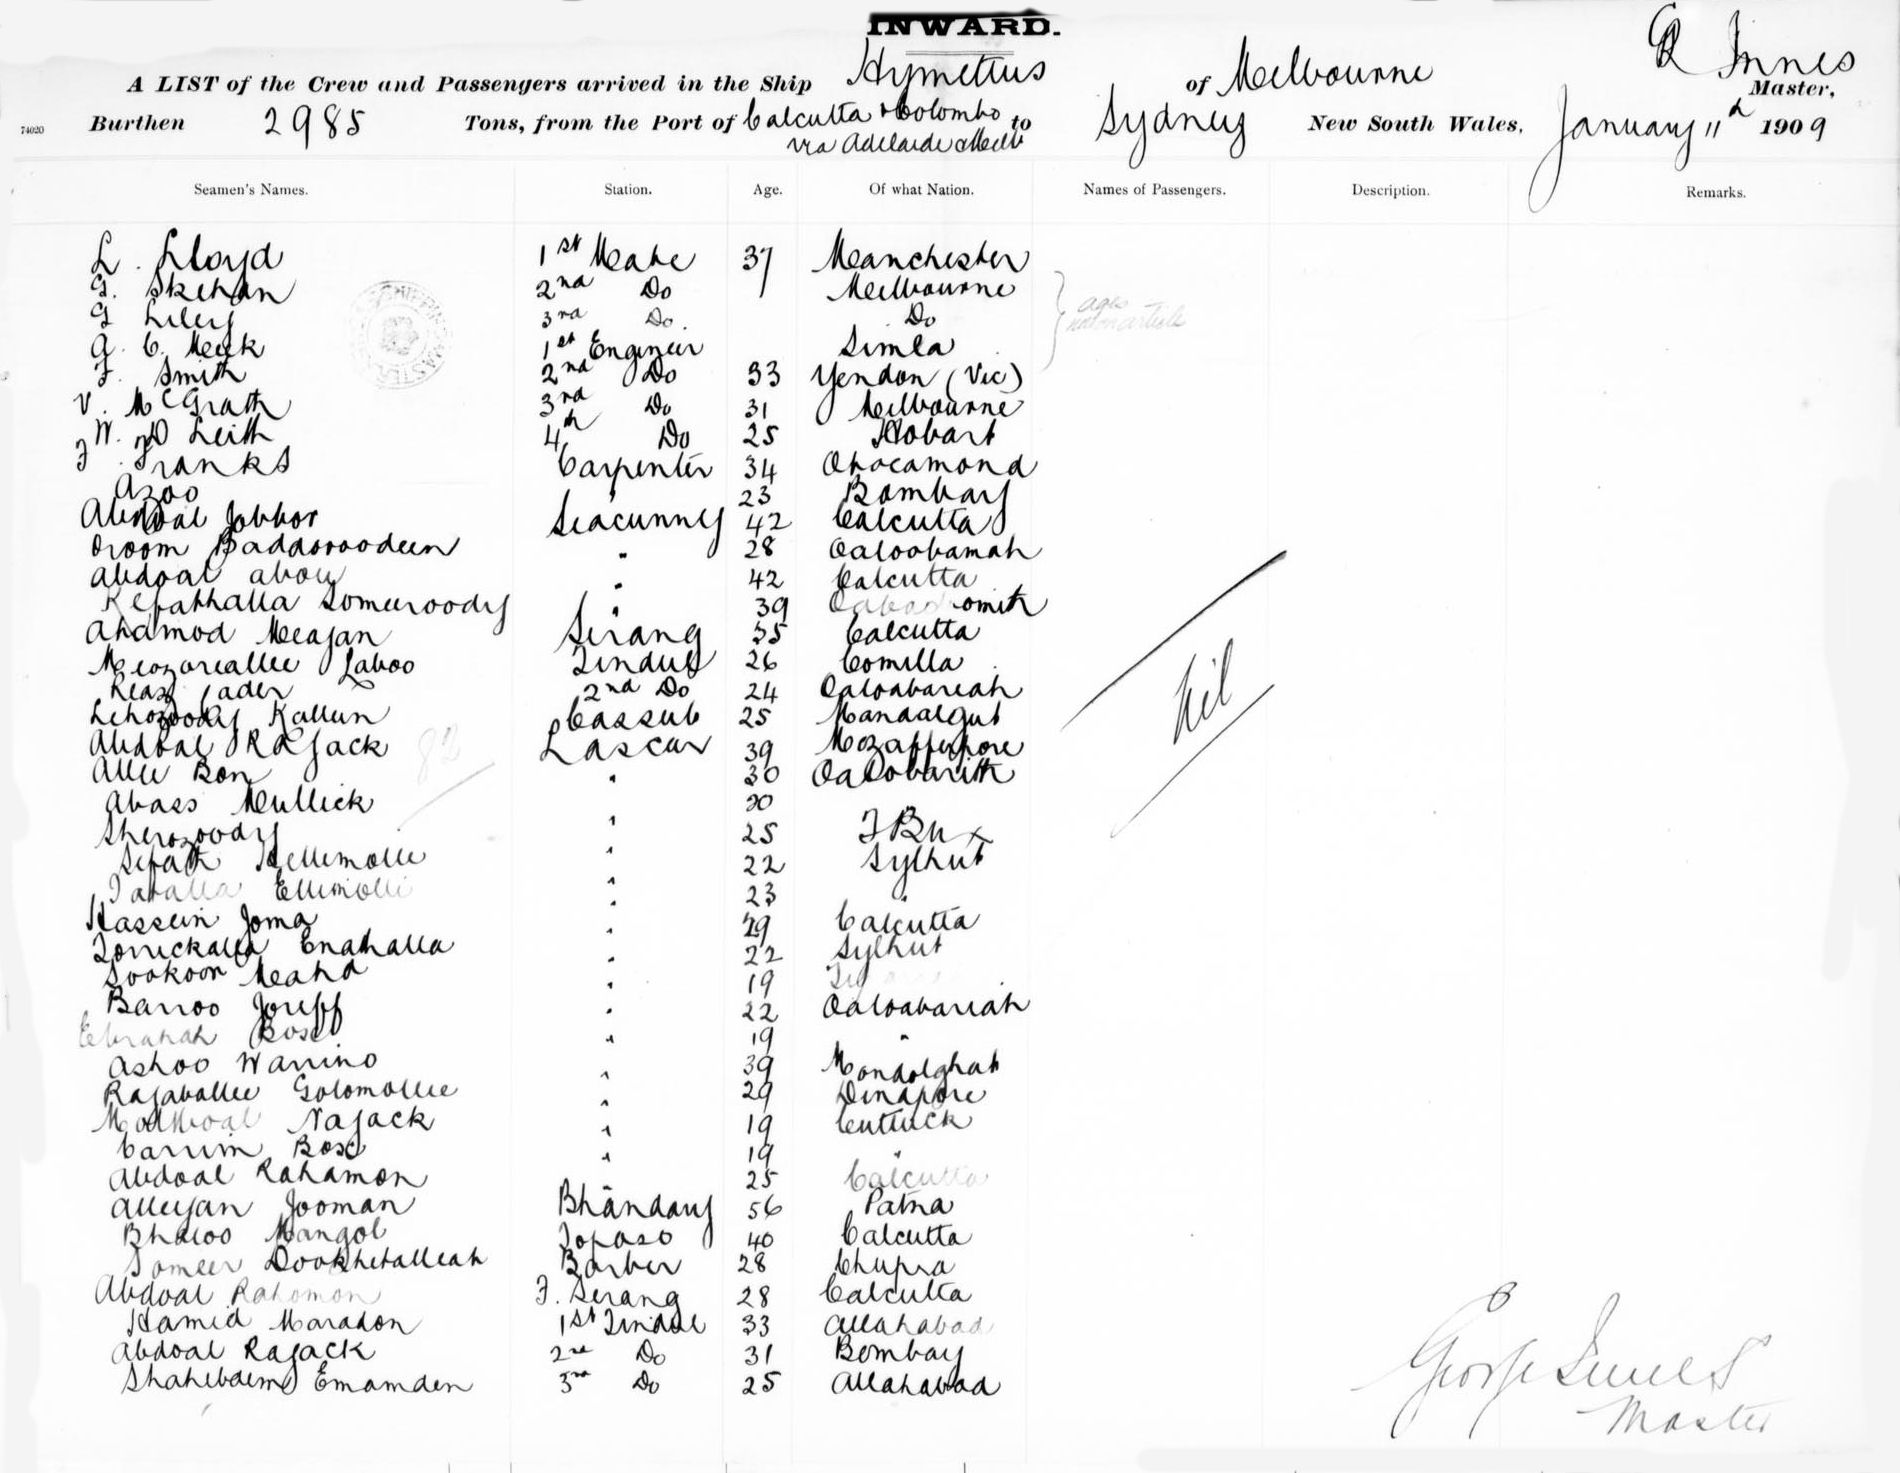 INWARD.
A LIST of the Crew and Passengers arrived in the Ship Hymettus of Melbourne G Innes Master,
74020 Burthen 2985 Tons, from the Port of Calcutta & Colombo to Sydney New South Wales, January 11th 1909
via Adelaide & Melb
Seamen's Names. Station. Age. Of what Nation. Names of Passengers. Description. Remarks.
L. Lloyd 1st Mate 37 Manchester
G. Skehan 2nd Do Melbourne
G Liley 3rd Do. Do
ages
not on article
A. C. Meek 1st Engineer Simla
F. Smith 2nd Do 33 Yendon (Vic)
V. McGrath 3rd Do 31 Melbourne
W. D Leith 4th Do 25 Hobart
F. Franks Carpenter 34 Ohocamond
Azoo " 23 Bombay
Abdoal Jobbor Seacunney 42 Calcutta
Oroom Baddoroodeen " 28 Oaloobamah
Abdoal Aboy " 42 Calcutta
Kefathalla Someeroody " 39
Ahamod Meajan Serang 35 Calcutta
Meozoreallee Laboo Tindul 26 Comilla
Keaz Cader 2nd Do 24 Oaloabareah
Kallun Cassub 25 Mandalgut
Abdoal Rajack Lascar 39 Mozafferpore
Allee Bon " 30 Oaloobarith
Abass Mullick " 20
Sherozoody " 25
Sefath Kellemolle " 22 Sylhut
Tavalla Ellimolli " 23 "
Hassein Joma " 29 Calcutta
Enathalla " 22 Sylhut
Sookoor Meaha " 19
Barroo Joreff " 22 Oaloabariah
Ebrahah Bose " 19 "
Ashoo Warrino " 39 Mondolghat
Rajaballee Golomollee " 29 Dinapore
Najack " 19 Cuttuck
Carrim Bose " 19 "
Abdoal Rahamon " 25 Calcutta
Alleyjan Jooman Bhandary 56 Patna
Bhaloo Mangol Topaso 40 Calcutta
Someer Dookhehalleah Barber 28 Chupra
Abdoal Rahomon F. Serang 28 Calcutta
Hamid Maradon 1st Tindal 33 Allahabad
Abdoal Rajack 2nd Do 31 Bombay
Shahebdeem Emamden 3rd Do 25 Allahabad
Nil
82
George Innes
Master